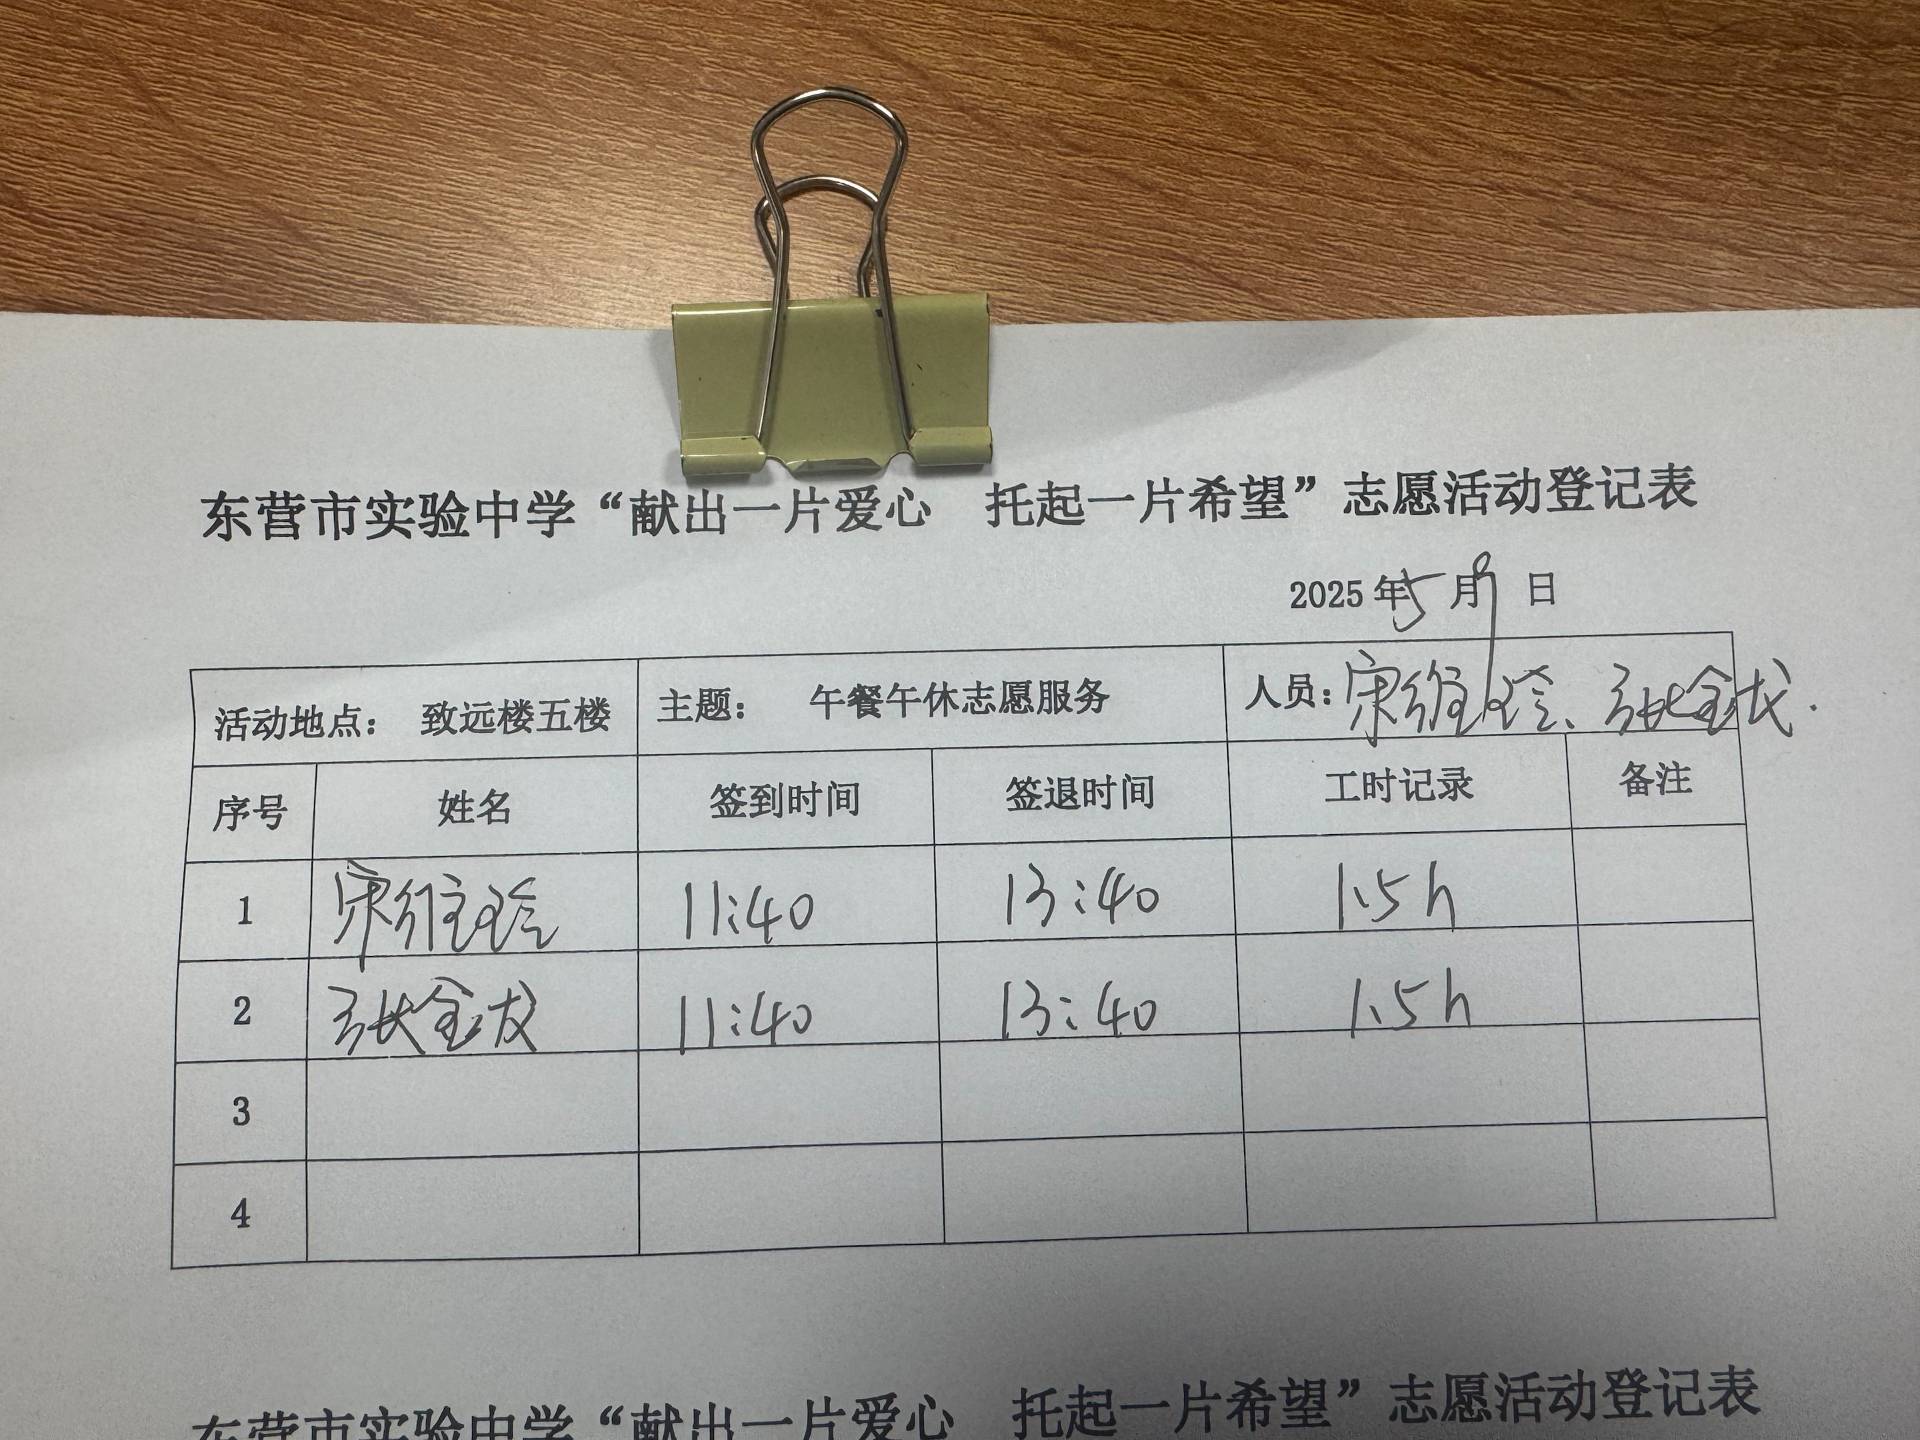 东营市实验中学“献出一片爱心 托起一片希望”志愿活动登记表
2025 年 5 月 9 日
活动地点： 致远楼五楼 主题： 午餐午休志愿服务 人员：宋维玲、张金成.
序号 姓名 签到时间 签退时间 工时记录 备注
1 宋维玲 11:40 13:40 1.5h
2 张金成 11:40 13:40 1.5h
3
4
东营市实验中学“献出一片爱心 托起一片希望”志愿活动登记表